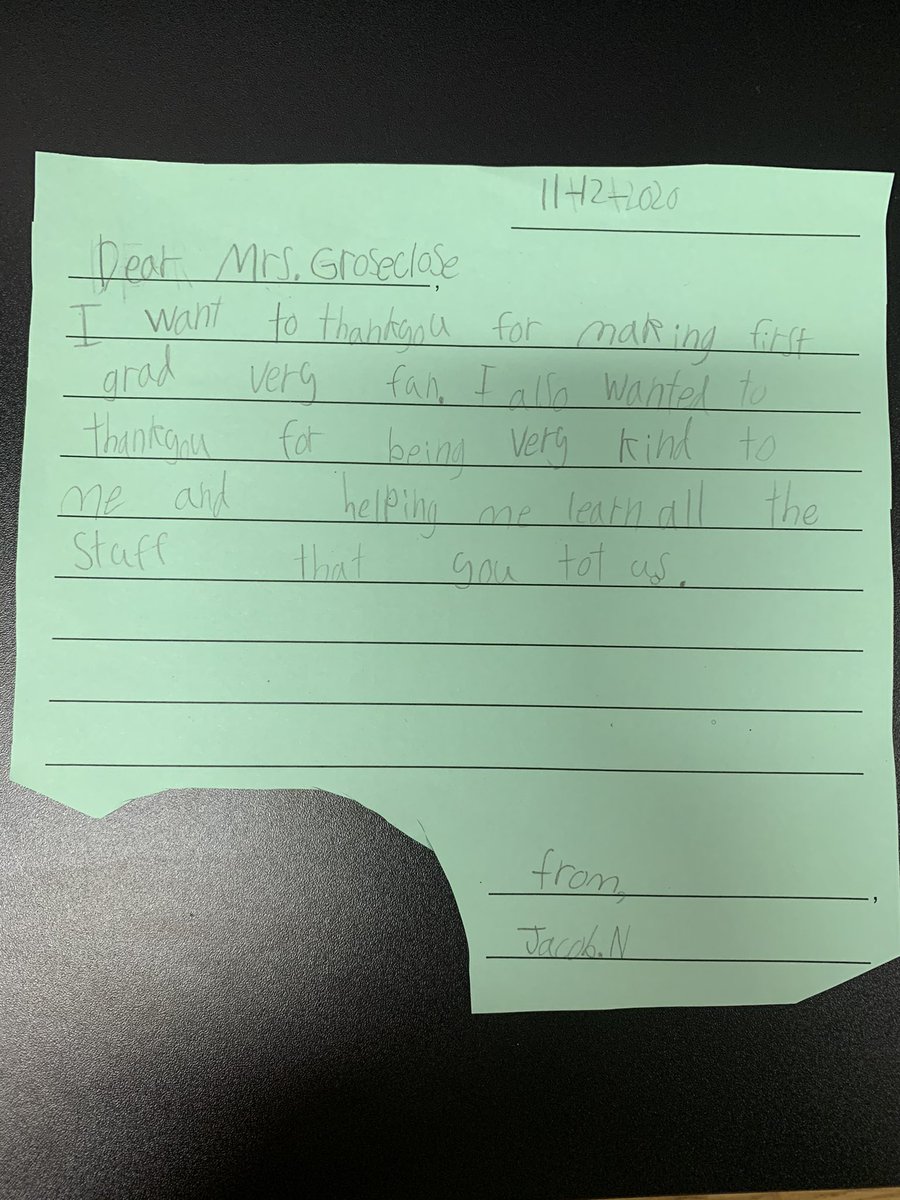 11-12-2020
Dear Mrs. Groseclose,
I want to thankyou for making first
grad very fun. I also wanted to
thankyou for being very kind to
me and helping me learn all the
Stuff that you tot us.
from,,
Jacob.N